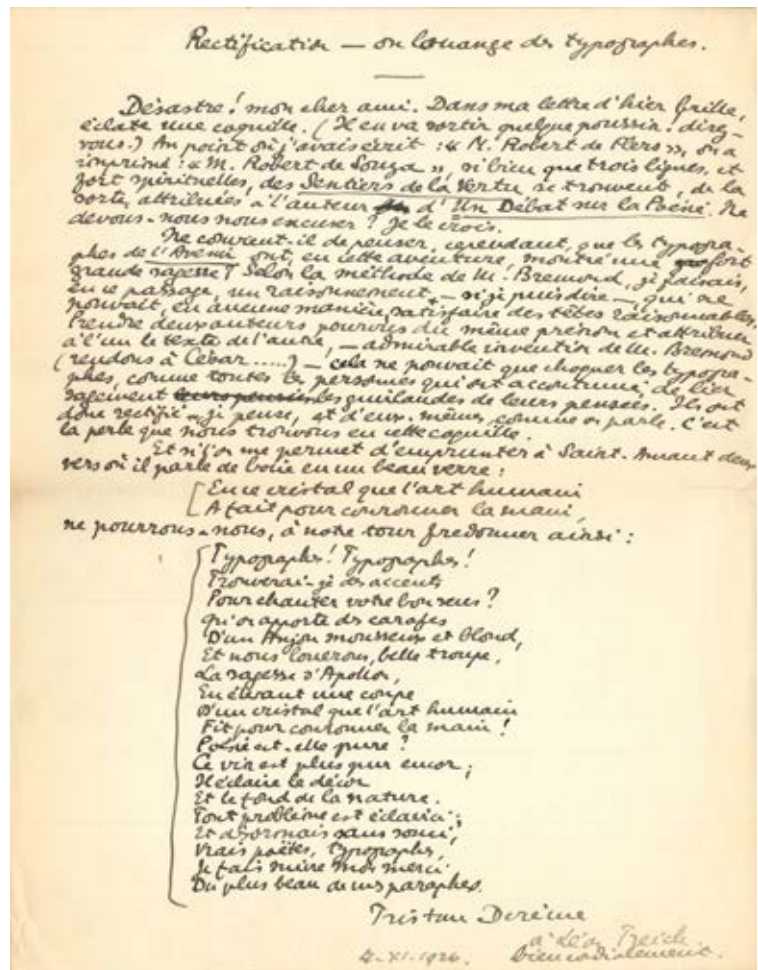 Rectification — ou louange des typographes.
Désastre ! mon cher ami. Dans ma lettre d'hier brille,
éclate une coquille. (Il en va sortir quelque poussin : direz-
vous.) Au point où j'avais écrit : « M. Robert de Flers », on a
imprimé : « M. Robert de Souza », si bien que trois lignes, et
fort spirituelles, des Sentiers de la Vertu se trouvent, de la
sorte, attribuées à l'auteur d'Un Débat sur la Poésie. Ne
devons-nous nous excuser ? Je le crois.
Ne convient-il de penser, cependant, que les typogra-
phes de l'Avenir ont, en cette aventure, montré une fort
grande sagesse ? Selon la méthode de M. Bremond, je faisais,
en ce passage, un raisonnement — si je puis dire —, qui ne
pouvait, en aucune manière, satisfaire des têtes raisonnables.
Prendre deux auteurs pourvus du même prénom et attribuer
à l'un le texte de l'autre, — admirable invention de M. Bremond
(rendons à César .....) — cela ne pouvait que choquer les typogra-
phes, comme toutes les personnes qui ont accoutumé de lier
sagement les guirlandes de leurs pensées. Ils ont
donc rectifié, je pense, et d'eux-mêmes, comme on parle. C'est
la perle que nous trouvons en cette coquille.
Et si l'on me permet d'emprunter à Saint-Amant deux
vers où il parle de boire en un beau verre :
En ce cristal que l'art humain
A fait pour couronner la main,
ne pourrons-nous, à notre tour fredonner ainsi :
Typographes ! Typographes !
Trouverai-je des accents
Pour chanter votre bon sens ?
Qu'on apporte des carafes
D'un Anjou mousseux et blond,
Et nous louerons, belle troupe,
La sagesse d'Apollon,
En élevant une coupe
D'un cristal que l'art humain
Fit pour couronner la main !
Poésie est-elle pure ?
Ce vin est plus pur encor ;
Il éclaire le décor
Et le fond de la nature.
Tout problème est éclairci ;
Et désormais sans souci,
Vrais poètes, typographes,
Je fais suivre mon merci
Du plus beau de mes paraphes.
Tristan Derème
à Léon Treich
bien cordialement.
4-XI-1926.